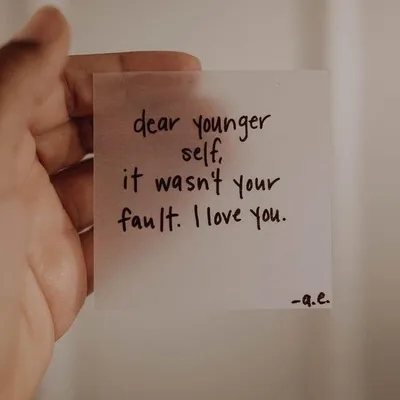 dear younger
self,
it wasn't your
fault. I love you.
-a.e.